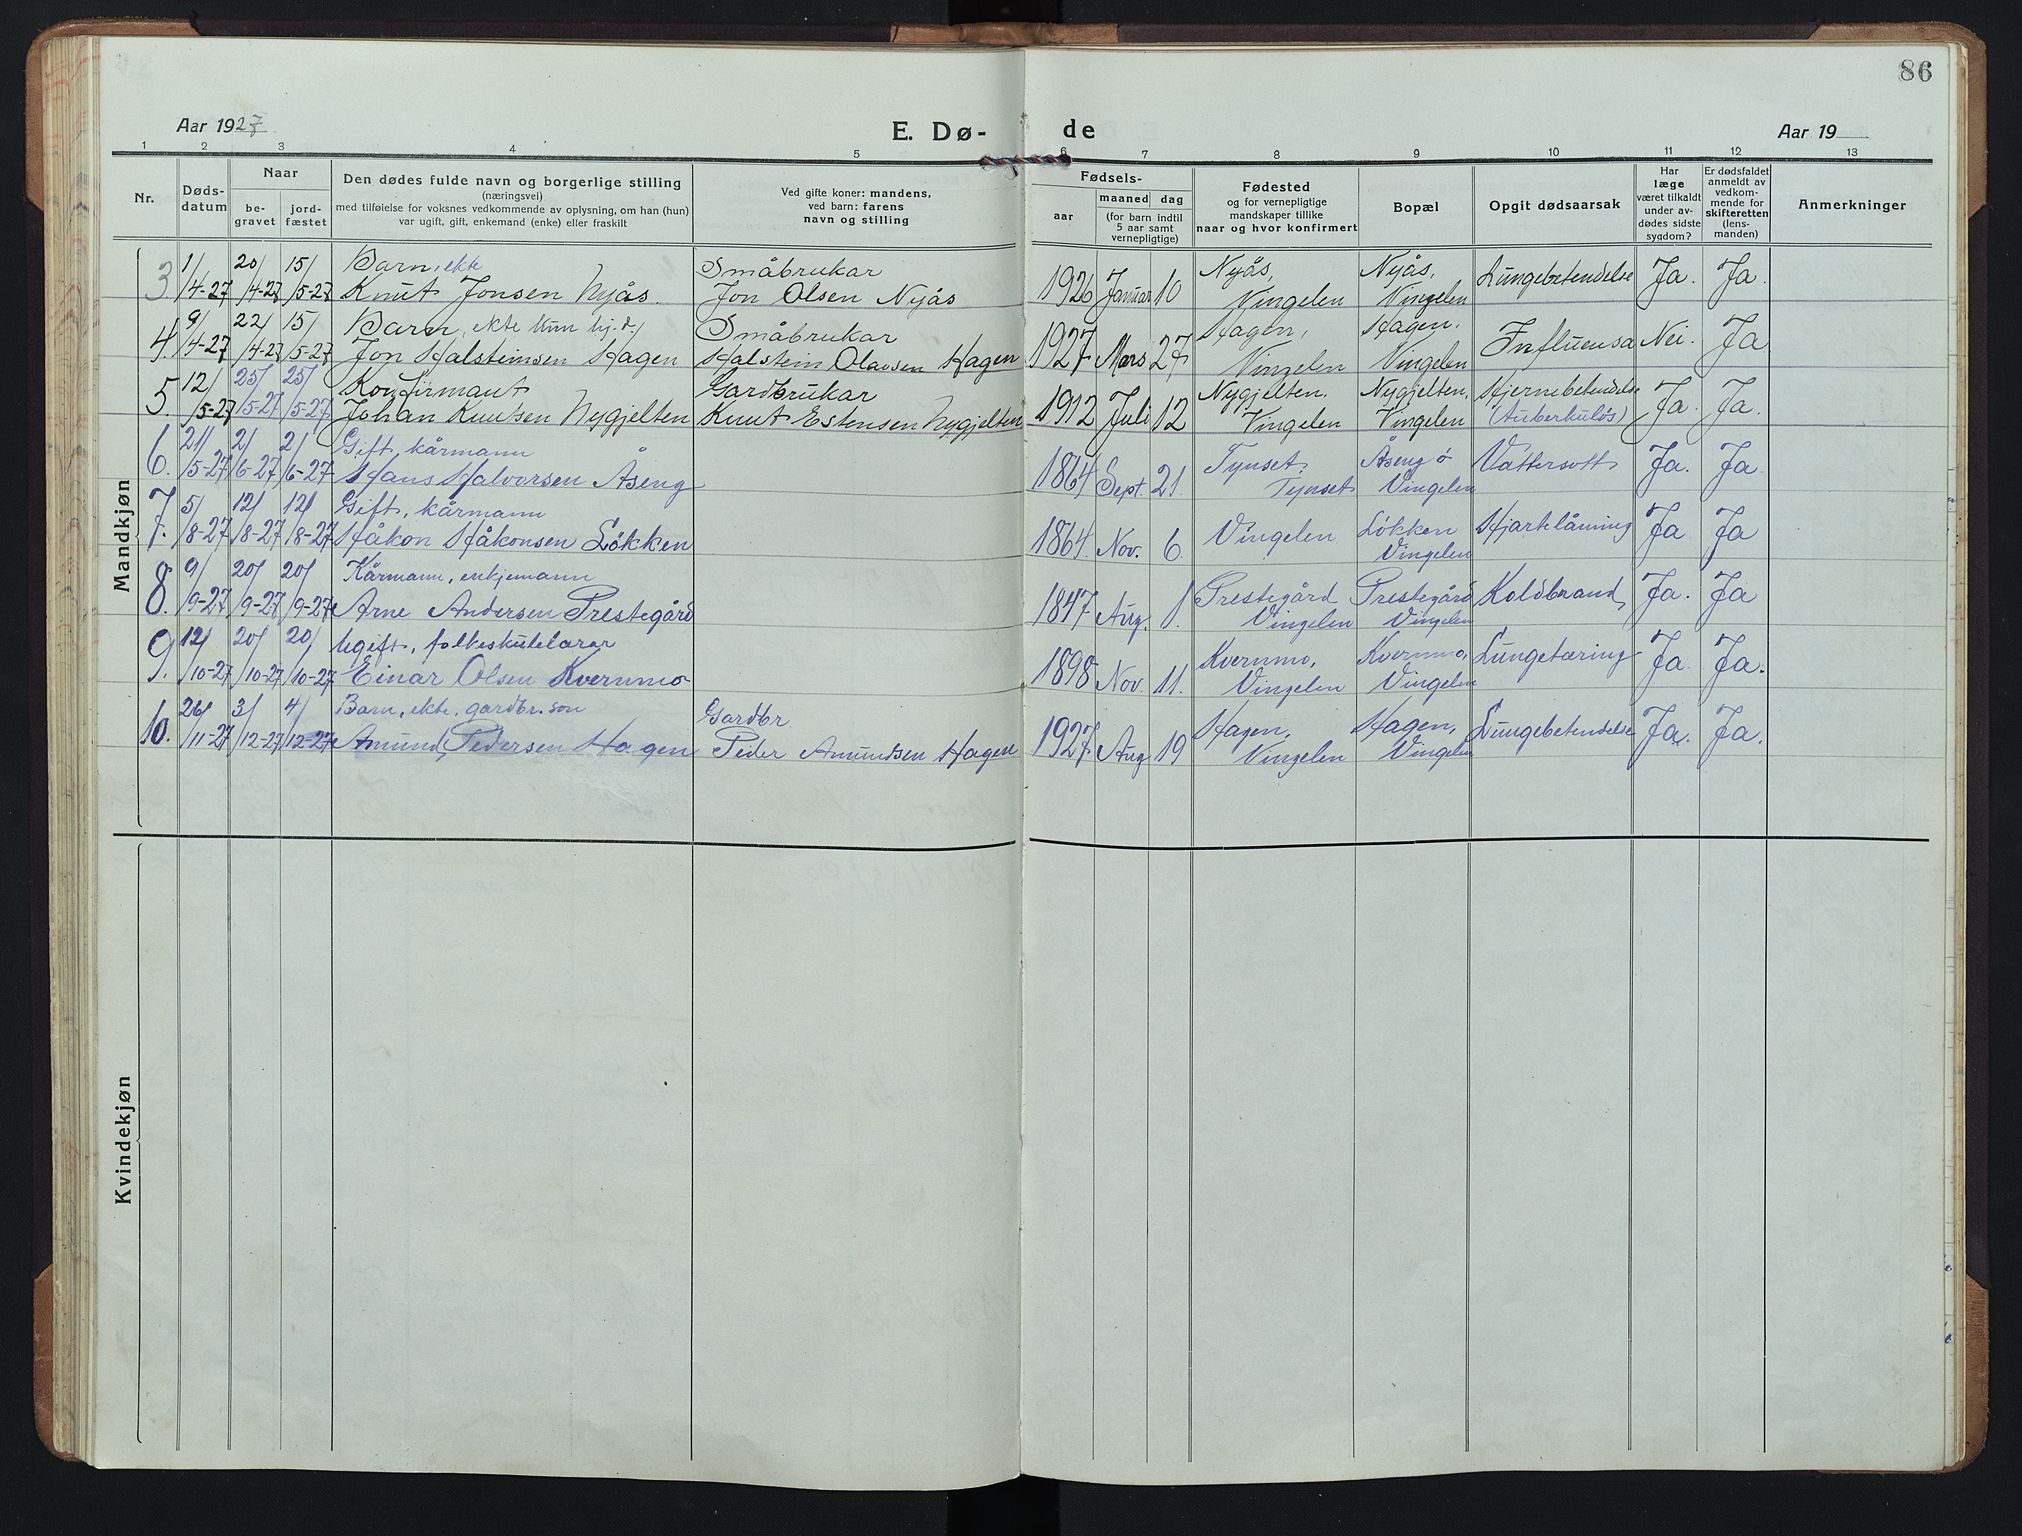 86
Aar 1927
E. Dø-
de
Aar 19
1 2 3 4 5 6 7 8 9 10 11 12 13
Nr.
Døds-
datum
Naar
be-
gravet
jord-
fæstet
Den dødes fulde navn og borgerlige stilling
(næringsvei)
med tilføielse for voksnes vedkommende av oplysning, om han (hun)
var ugift, gift, enkemand (enke) eller fraskilt
Ved gifte koner: mandens,
ved barn: farens
navn og stilling
Fødsels-
aar
maaned dag
(for barn indtil
5 aar samt
vernepligtige)
Fødested
og for vernepligtige
mandskaper tillike
naar og hvor konfirmert
Bopæl
Opgit dødsaarsak
Har
læge
været tilkaldt
under av-
dødes sidste
sygdom?
Er dødsfaldet
anmeldt av
vedkom-
mende for
skifteretten
(lens-
manden)
Anmerkninger
Mandkjøn
1/ 20/ 15/ Barn, ekte Småbrukar Nyås, Nyås, Lungebetendelse
3 /4-27 /4-27 /5-27 Knut Jonsen Nyås. Jon Olsen Nyås 1926 Januar 10 Vingelen Vingelen Ja. Ja.
9/ 22/ 15/ Barn, ekte hj.d. Småbrukar Hagen, Hagen.
4. /4-27 /4-27 /5-27 Jon Halsteinsen Hagen Halstein Olavsen Hagen 1927 Mars 27 Vingelen Vingelen Influensa Nei. Ja
12/ 25/ 25/ Konfirmant Gardbrukar Nygjelten. Nygjelten, Hjernebetendelse
5. /5-27 /5-27 /5-27 Johan Knutsen Nygjelten Knut Estensen Nygjelten 1912 Juli 12 Vingelen Vingelen (Tuberkuløs) Ja. Ja.
21/ 2/ 2/ Gift, kårmann Tynset. Åseng ø Vattersott
6. /5-27 /6-27 /6-27 Hans Halvorsen Åseng 1864 Sept. 21. Tynset Vingelen Ja. Ja
5/ 12/ 12/ Gift, kårmann Løkken Hjartelåming
7. /8-27 /8-27 /8-27 Håkon Håkonsen Løkken 1864 Nov. 6. Vingelen Vingelen Ja Ja
9/ 20/ 20/ Kårmann, enkjemann Prestegård Prestegård Koldbrand
8. /9-27 /9-27 /9-27 Arne Andersen Prestegård 1847 Aug. 1. Vingelen Vingelen Ja. Ja
12/ 20/ 20/ Ugift, folkeskulelærar Kvernmo, Kvernmo, Lungetæring
9. /10-27 /10-27 /10-27 Einar Olsen Kvernmo 1898 Nov. 11. Vingelen Vingelen Ja Ja.
26/ 3/ 4/ Barn, ekte, gardbr. son Gardbr. Hagen, Hagen, Lungebetendelse
10. /11-27 /12-27 /12-27 Amund Pedersen Hagen Peder Amundsen Hagen 1927 Aug 19 Vingelen Vingelen Ja. Ja.
Kvindekjøn